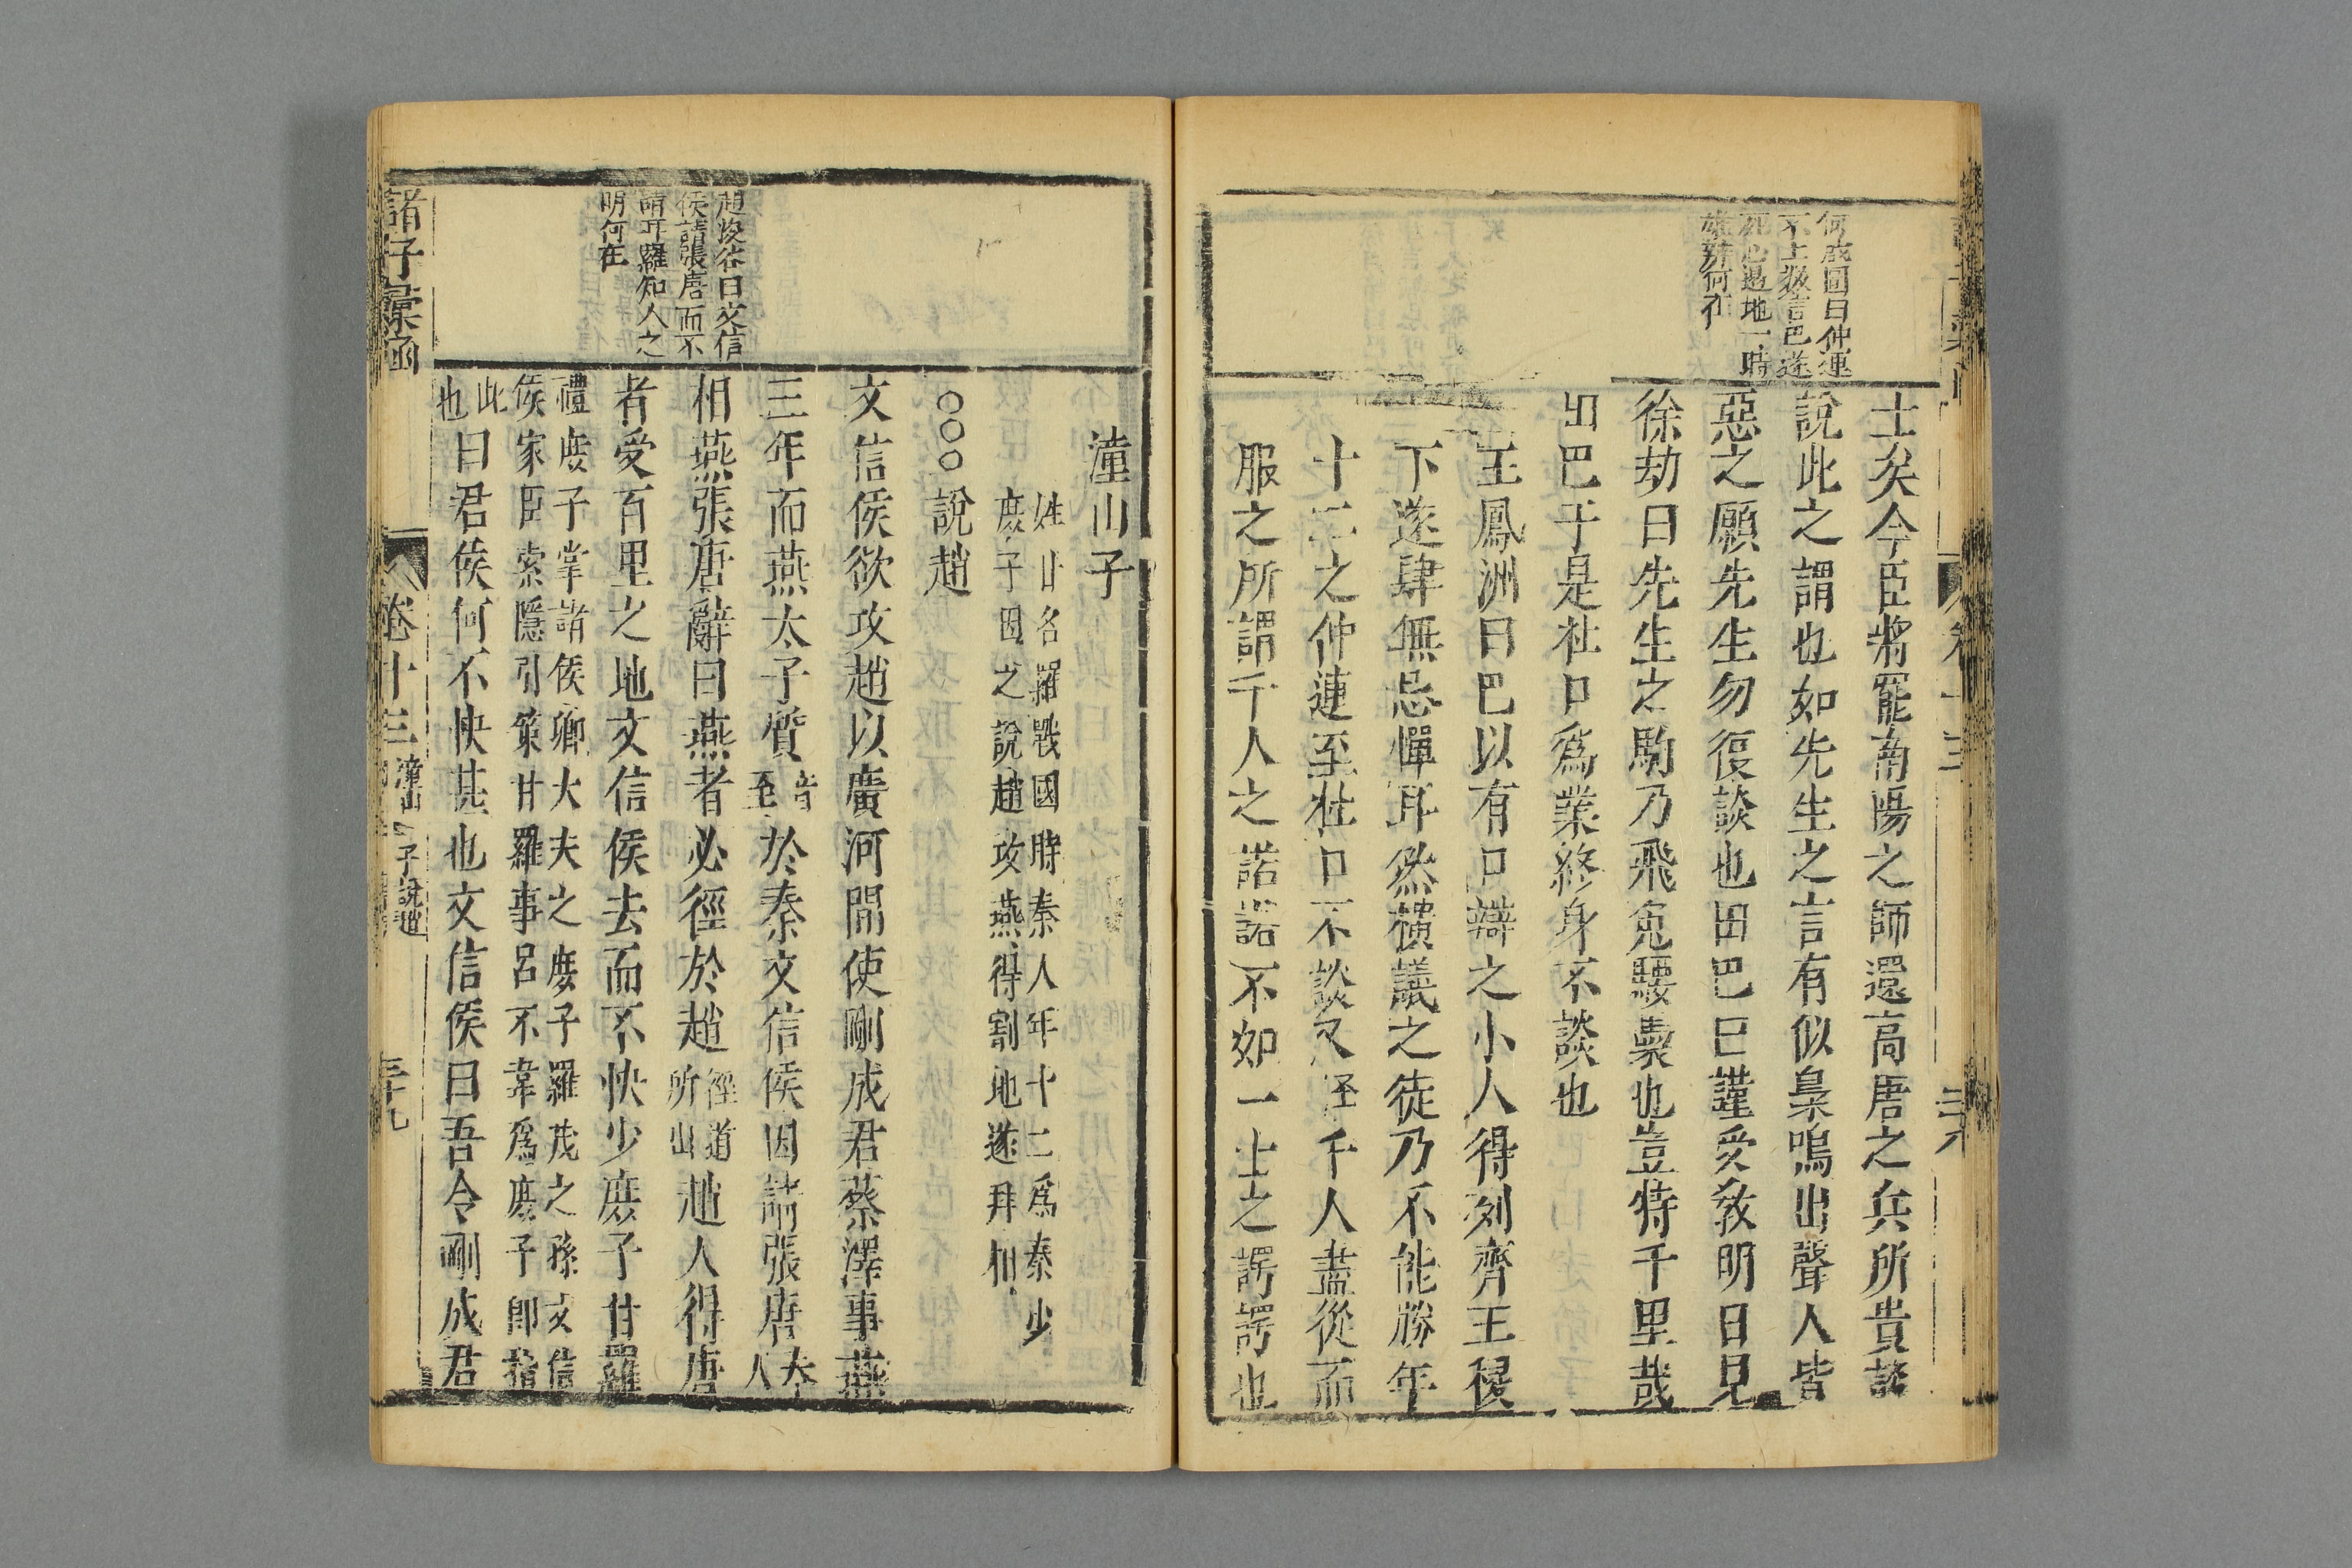 何啟圖曰仲連
不上數言巴遂
死心遏地一時
雄辨何在
士矣今臣將罷南陽之師還高唐之兵所貴談
說此之謂也如先生之言有似梟鳴出聲人皆
惡之願先生勿復談也田巴曰謹受教明日見
徐劫曰先生之駒乃飛兔騕褭也豈特千里哉
田巴于是杜口為業終身不談也
王鳳洲曰巴以有口辯之小人得列齊王稷
下遂肆無忌憚耳然橫議之徒乃不能勝年
十二之仲連至杜口不談又怪千人盡從而
服之所謂千人之諾諾不如一士之諤諤也
趙浚谷曰文信
侯請張唐而不
請耳羅知人之
明何在
潼山子
姓甘名羅戰國時秦人年十二為秦少
庶子因之說趙攻燕得割地遂拜相
○○○說趙
文信侯欲攻趙以廣河間使剛成君蔡澤事燕
三年而燕太子質音至於秦文信侯因請張唐秦人
相燕張唐辭曰燕者必徑於趙徑道所出趙人得唐
者受百里之地文信侯去而不快少庶子甘羅
禮庶子掌諸侯卿大夫之庶子羅茂之孫文信
侯家臣索隱引策甘羅事呂不韋為庶子即指
此也曰君侯何不快甚也文信侯曰吾令剛成君
諸子彙函
卷十三
潼山子 說趙
三十九